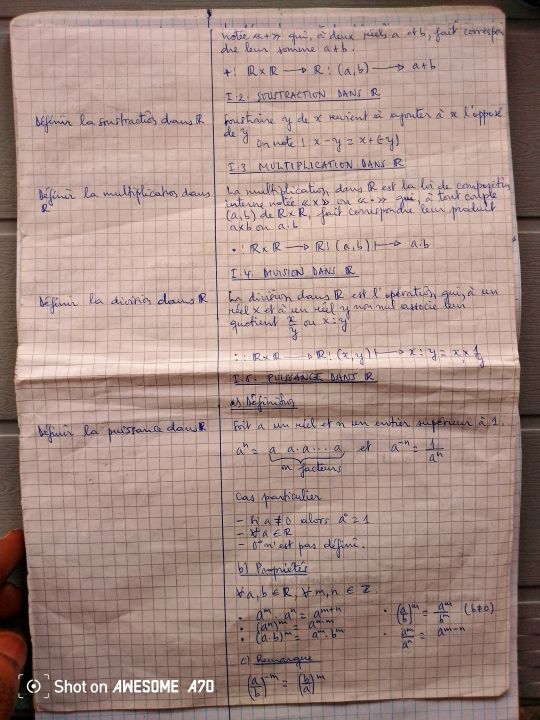 notée «+» qui, à deux réels a et b, fait correspon
dre leur somme a+b.
+: ℝ×ℝ → ℝ: (a,b) → a+b
I.2. SOUSTRACTION DANS ℝ
Définir la soustraction dans ℝ
Soustraire y de x revient à ajouter à x l'opposé
de y
On note: x-y = x+(-y)
I.3 MULTIPLICATION DANS ℝ
Définir la multiplication dans
ℝ
La multiplication dans ℝ est la loi de composition
interne notée «×» ou «•» qui, à tout couple
(a,b) de ℝ×ℝ, fait correspondre leur produit
a×b ou a.b
•: ℝ×ℝ → ℝ: (a,b) ↦ a.b
I.4. DIVISION DANS ℝ
Définir la division dans ℝ
La division dans ℝ est l'opération qui, à un
réel x et à un réel y non nul associe leur
quotient x/y ou x:y
:: ℝ×ℝ → ℝ: (x,y) ↦ x:y = x×1/y
I.5. PUISSANCE DANS ℝ
a) Définition
Définir la puissance dans ℝ
Soit a un réel et n un entier supérieur à 1.
aⁿ = a a.a... a et a⁻ⁿ = 1/aⁿ
n facteurs
Cas particulier
- Si a≠0 alors a°=1
- ∀a∈ℝ
- 0° n'est pas défini.
b) Propriétés
∀a,b∈ℝ, ∀m,n∈ℤ.
• aᵐ.aⁿ = aᵐ⁺ⁿ • (a/b)ᵐ = aᵐ/bᵐ (b≠0)
• (aⁿ)ᵐ = aᵐ·ⁿ
• (a.b)ᵐ = aᵐ.bᵐ • aᵐ/aⁿ = aᵐ⁻ⁿ
c) Remarque
(a/b)⁻ᵐ = (b/a)ᵐ
Shot on AWESOME A70